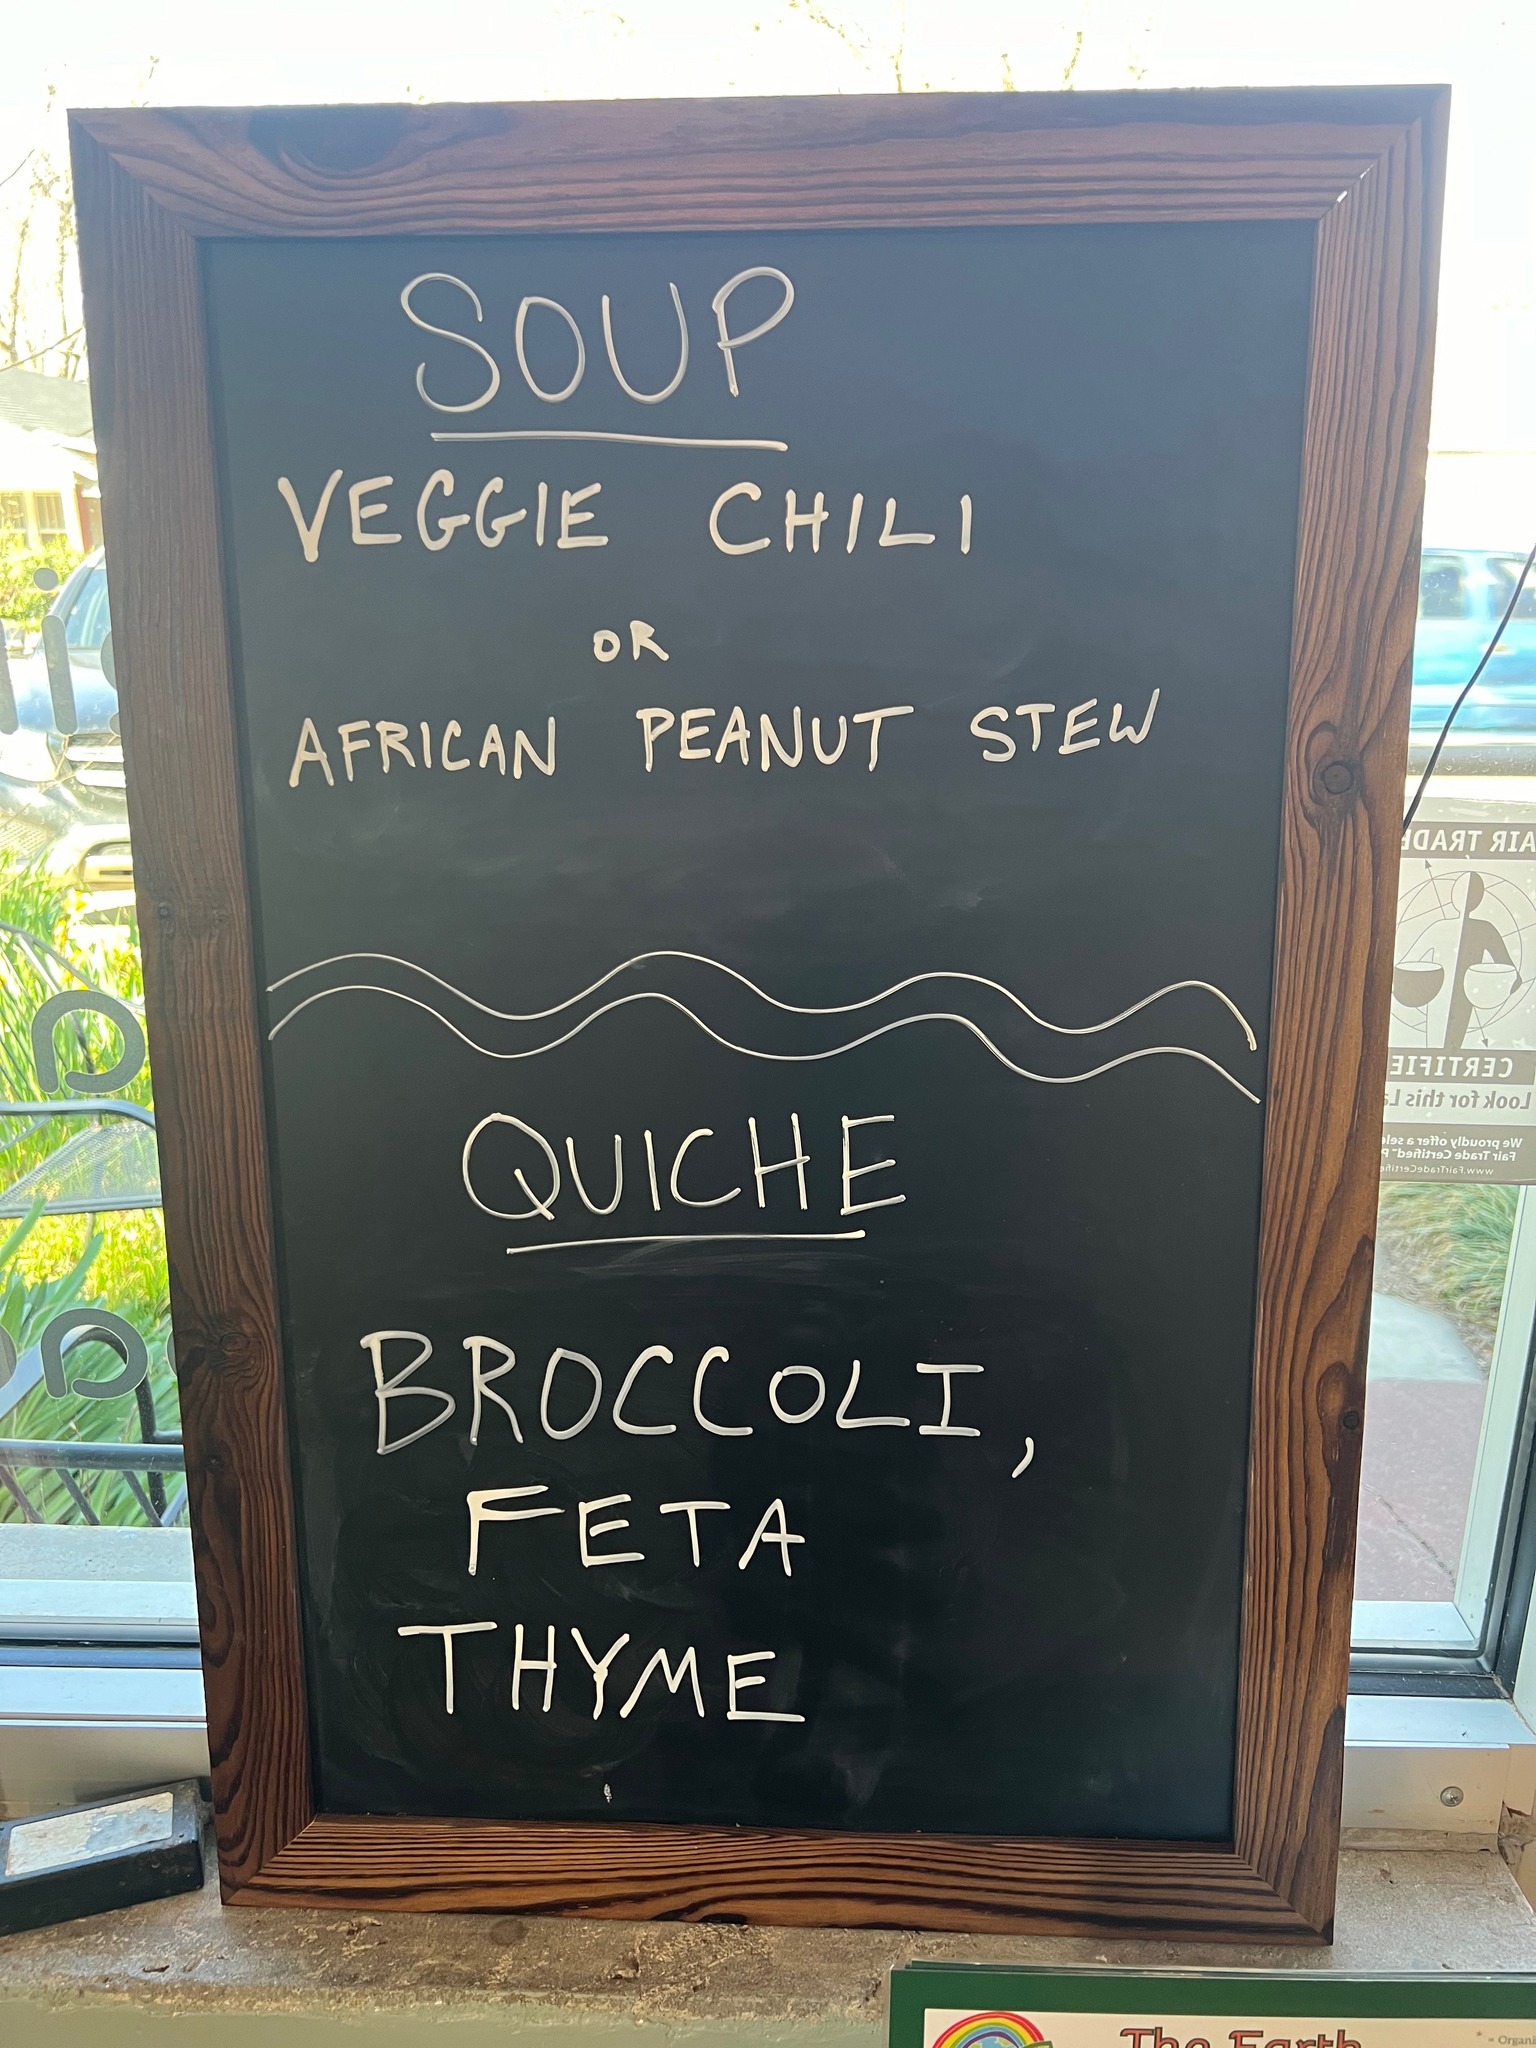 SOUP
VEGGIE CHILI
OR
AFRICAN PEANUT STEW
QUICHE
BROCCOLI,
FETA
THYME
AIR TRADE
CERTIFIE
Look for this La
We proudly offer a sele
Fair Trade Certified™ P
www.FairTradeCertifie
The Earth
* = Organi